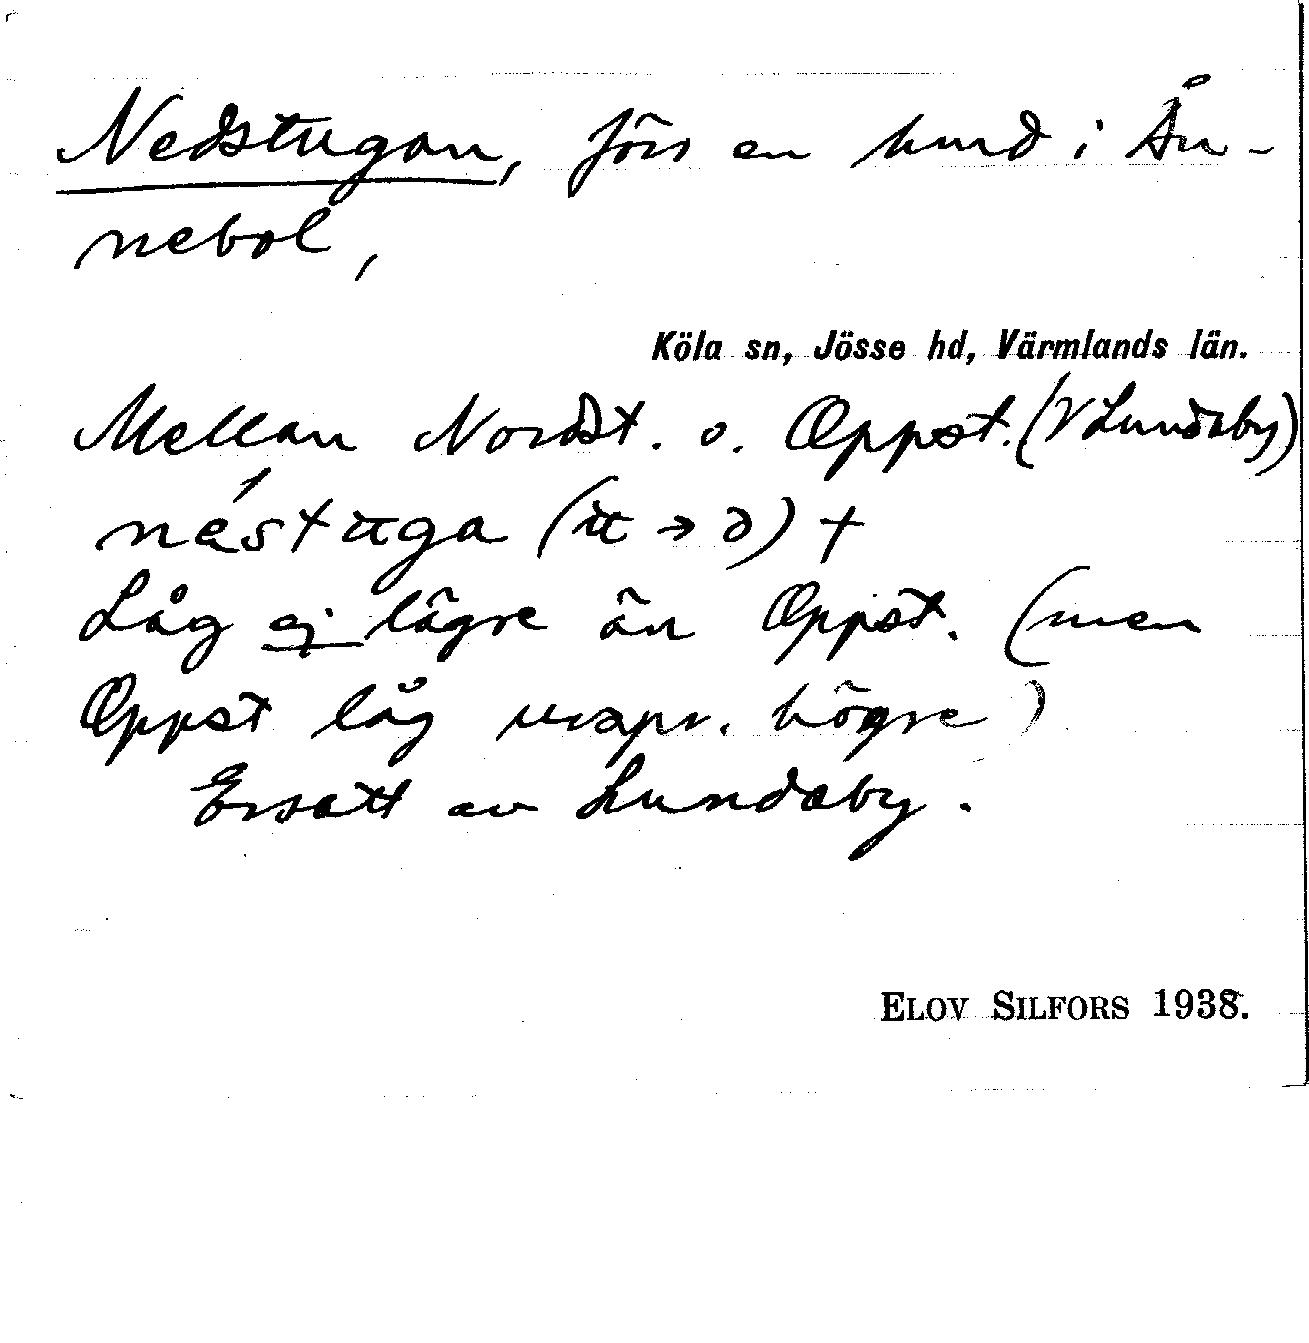 Nedstugan, förs en hmd i Ån-
nebol,
Köla sn, Jösse hd, Värmlands län.
Mellan Nordst. o. Oppst. (V Lundaby)
nástuga (u → ə) +
Låg ej lägre än Oppst. (men
Oppst låg urspr. högre)
Ersatt av Lundaby.
ELOV SILFORS 1938.